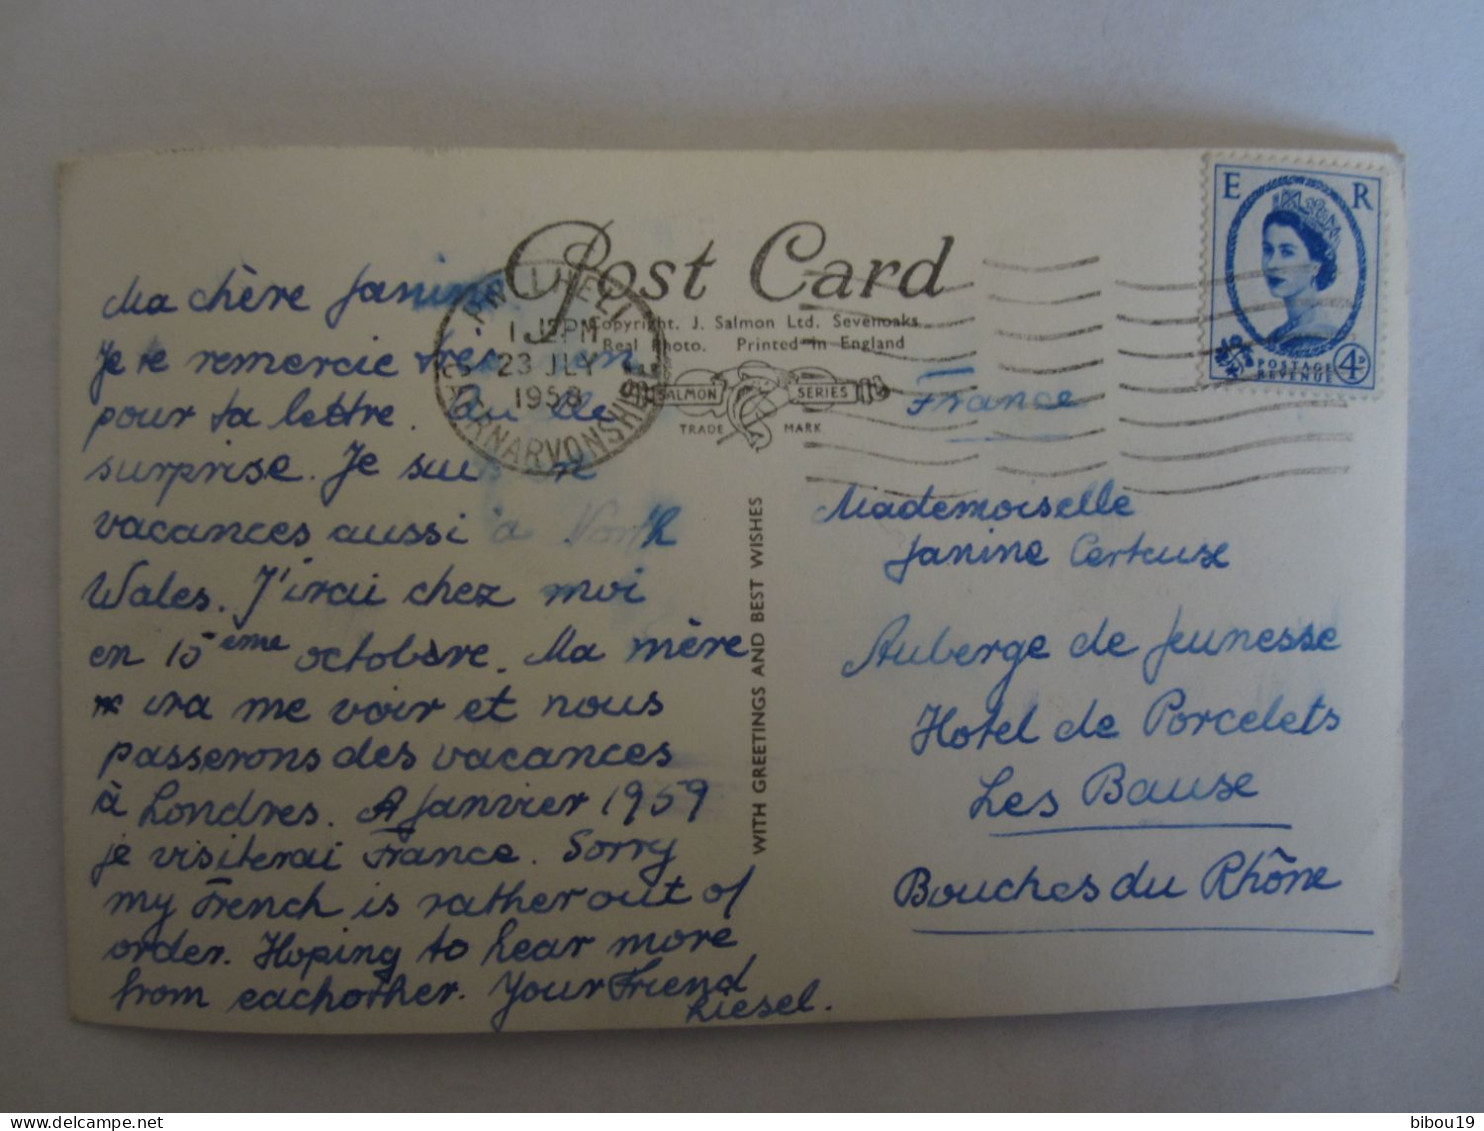 Post Card
Copyright. J. Salmon Ltd. Sevenoaks
Real Photo. Printed in England
SALMON SERIES
TRADE MARK
WITH GREETINGS AND BEST WISHES
PWLLHELI
1 15 PM
23 JLY
1958
CAERNARVONSHIRE
E R
POSTAGE
REVENUE
4D
Ma chère Janine
Je te remercie très
pour ta lettre. de
surprise. Je suis en
vacances aussi à North
Wales. J'irai chez moi
en 15ème octobre. Ma mère
ira me voir et nous
passerons des vacances
à Londres. A Janvier 1959
je visiterai France. Sorry
my French is rather out of
order. Hoping to hear more
from eachother. Your Friend
Liesel.
France
Mademoiselle
Janine
Auberge de Jeunesse
Hotel de Porcelets
Les Bause
Bouches du Rhône
bibou19